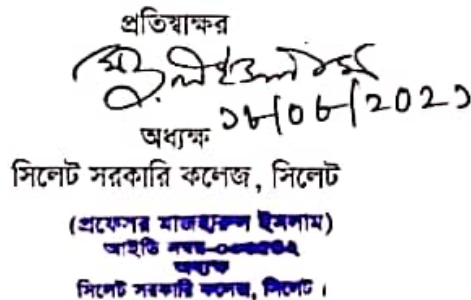 প্রতিস্বাক্ষর
অধ্যক্ষ ১৮/০৮/2021
সিলেট সরকারি কলেজ, সিলেট
(প্রফেসর মাজহারুল ইসলাম)
আইডি নম্বর-
অধ্যক্ষ
সিলেট সরকারি কলেজ, সিলেট।